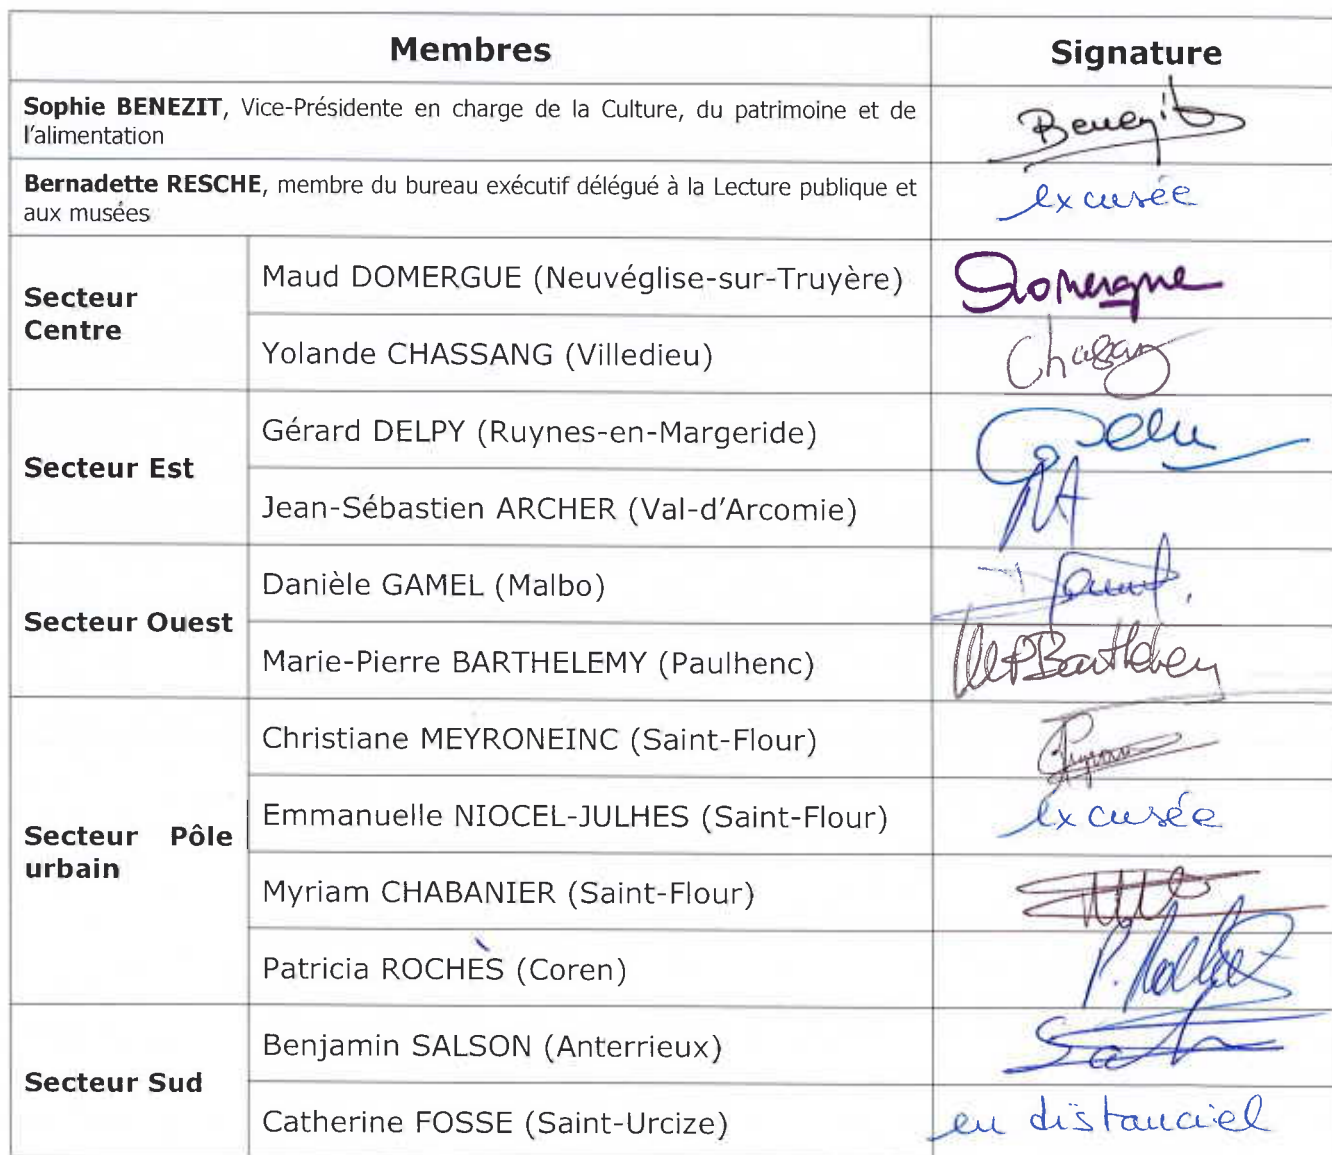 Membres Signature
Sophie BENEZIT, Vice-Présidente en charge de la Culture, du patrimoine et de
l'alimentation
Benezit
Bernadette RESCHE, membre du bureau exécutif délégué à la Lecture publique et
aux musées
excusée
Secteur
Centre
Maud DOMERGUE (Neuvéglise-sur-Truyère)
Domergue
Yolande CHASSANG (Villedieu)
Secteur Est
Gérard DELPY (Ruynes-en-Margeride)
Jean-Sébastien ARCHER (Val-d'Arcomie)
Secteur Ouest
Danièle GAMEL (Malbo)
Marie-Pierre BARTHELEMY (Paulhenc)
Secteur Pôle
urbain
Christiane MEYRONEINC (Saint-Flour)
Emmanuelle NIOCEL-JULHES (Saint-Flour)
excusée
Myriam CHABANIER (Saint-Flour)
Patricia ROCHÈS (Coren)
Secteur Sud
Benjamin SALSON (Anterrieux)
Catherine FOSSE (Saint-Urcize)
en distanciel